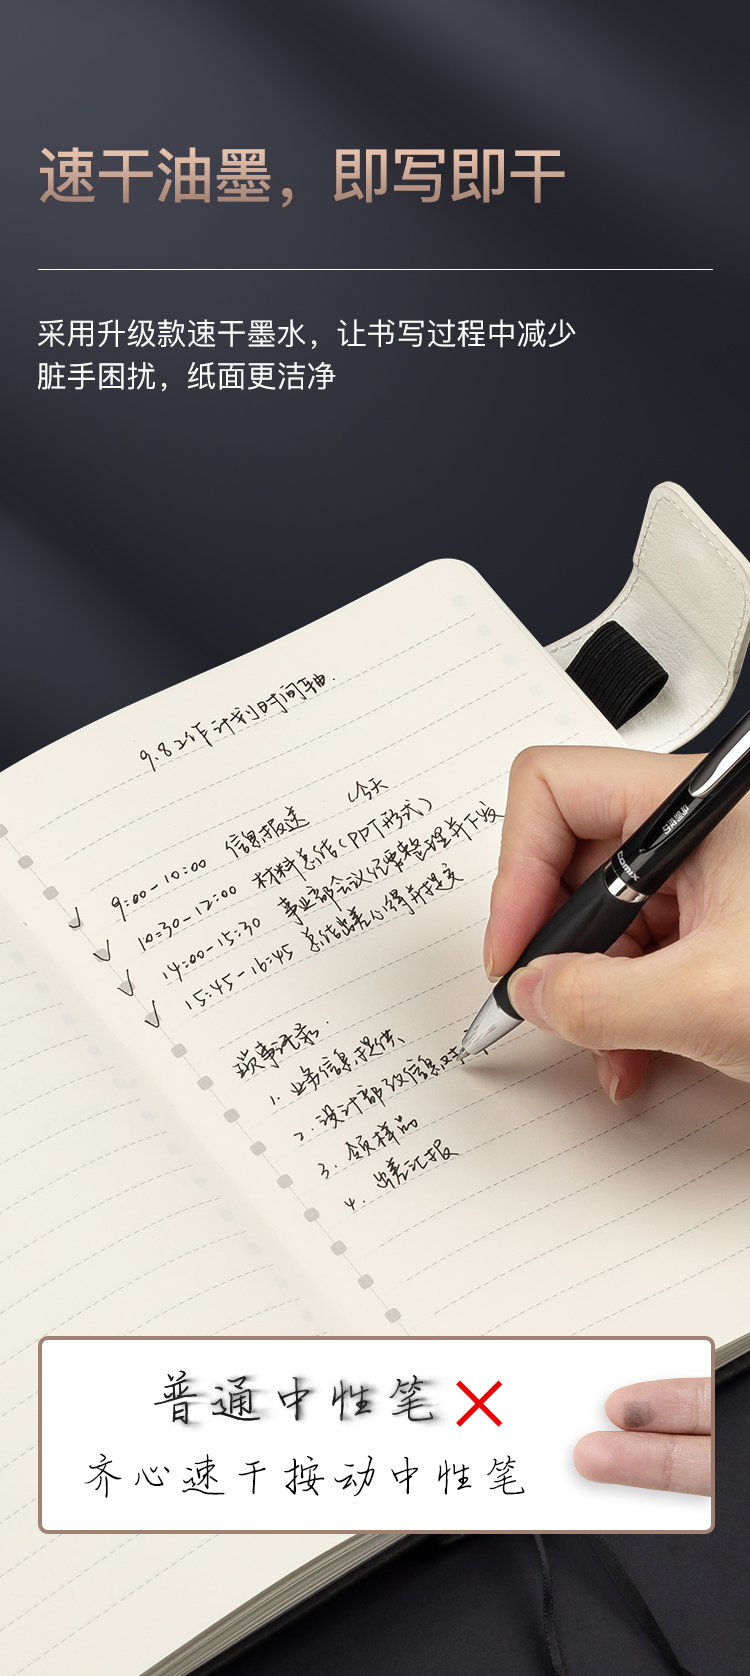 速干油墨，即写即干
采用升级款速干墨水，让书写过程中减少
脏手困扰，纸面更洁净
9.8工作计划时间轴.
今天
9:00-10:00 信息报送
10:30-12:00 材料总结(PPT形式)
14:00-15:30 事业部会议纪要整理并下发
15:45-16:45 总结出差心得并提交
琐事记录.
1. 业务信息提供、
2. 设计部改信息对
3. 领样品
4. 出差汇报
Comix
普通中性笔
齐心速干按动中性笔